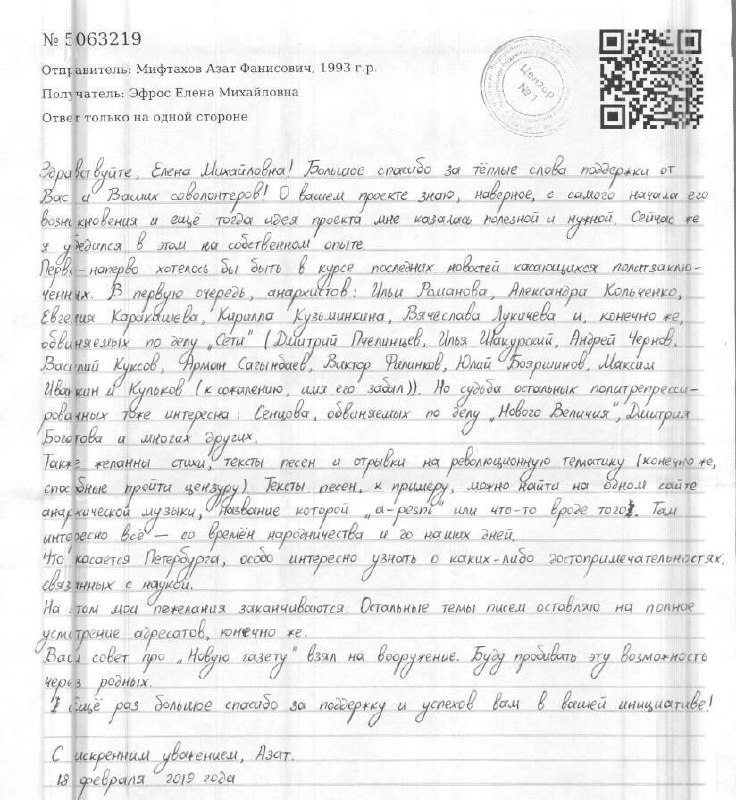 № 5063219
Отправитель: Мифтахов Азат Фанисович, 1993 г.р.
Получатель: Эфрос Елена Михайловна
Ответ только на одной стороне
Цензор
№1
Здравствуйте, Елена Михайловна! Большое спасибо за тёплые слова поддержки от
Вас и Ваших соволонтеров! О вашем проекте знаю, наверное, с самого начала его
возникновения и ещё тогда идея проекта мне казалась полезной и нужной. Сейчас же
я убедился в этом на собственном опыте
Перво-наперво хотелось бы быть в курсе последних новостей касающихся политзаклю-
ченных. В первую очередь, анархистов: Ильи Романова, Александра Кольченко,
Евгения Каракашева, Кирилла Кузьминкина, Вячеслава Лукичева и, конечно же,
обвиняемых по делу „Сети" (Дмитрий Пчелинцев, Илья Шакурский, Андрей Чернов,
Василий Куксов, Арман Сагынбаев, Виктор Филинков, Юлий Бояршинов, Максим
Иванкин и Кульков (к сожалению, имя его забыл)). Но судьба остальных политрепресси-
рованных тоже интересна: Сенцова, обвиняемых по делу „Нового Величия", Дмитрия
Боготова и многих других.
Также желанны стихи, тексты песен и отрывки на революционную тематику (конечно же,
способные пройти цензуру) Тексты песен, к примеру, можно найти на одном сайте
анархической музыки, название которой „a-pesni" или что-то вроде того. Там
интересно всё — со времён народничества и до наших дней.
Что касается Петербурга, особо интересно узнать о каких-либо достопримечательностях,
связанных с наукой.
На этом мои пожелания заканчиваются. Остальные темы писем оставляю на полное
усмотрение адресатов, конечно же.
Ваш совет про „Новую газету" взял на вооружение. Буду пробивать эту возможность
через родных.
Ещё раз большое спасибо за поддержку и успехов вам в вашей инициативе!
С искренним уважением, Азат.
18 февраля 2019 года